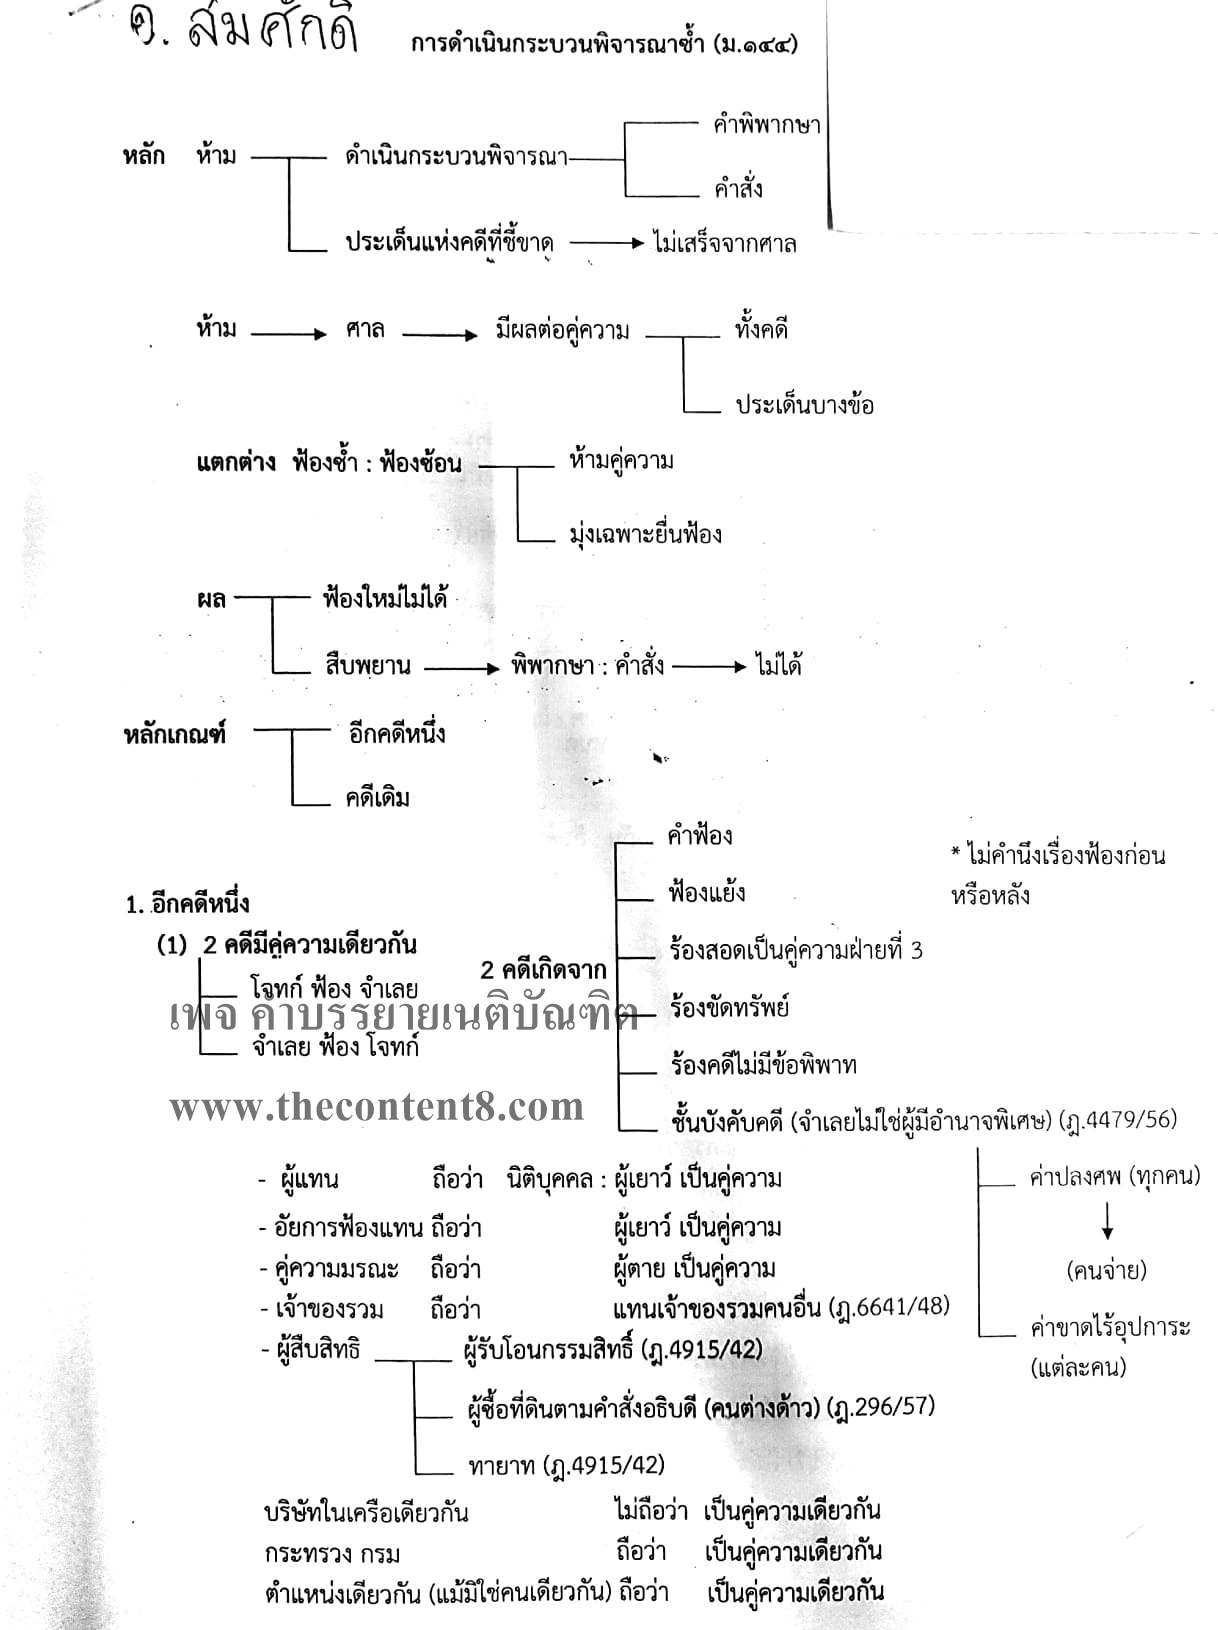 อ. สมศักดิ์
การดำเนินกระบวนพิจารณาซ้ำ (ม.๑๔๔)
คำพิพากษา
หลัก ห้าม ดำเนินกระบวนพิจารณา
คำสั่ง
ประเด็นแห่งคดีที่ชี้ขาด ไม่เสร็จจากศาล
ห้าม ศาล มีผลต่อคู่ความ ทั้งคดี
ประเด็นบางข้อ
แตกต่าง ฟ้องซ้ำ : ฟ้องซ้อน ห้ามคู่ความ
มุ่งเฉพาะยื่นฟ้อง
ผล ฟ้องใหม่ไม่ได้
สืบพยาน พิพากษา : คำสั่ง ไม่ได้
หลักเกณฑ์ อีกคดีหนึ่ง
คดีเดิม
คำฟ้อง
* ไม่คำนึงเรื่องฟ้องก่อน
หรือหลัง
ฟ้องแย้ง
1. อีกคดีหนึ่ง
(1) 2 คดีมีคู่ความเดียวกัน
ร้องสอดเป็นคู่ความฝ่ายที่ 3
2 คดีเกิดจาก
โจทก์ ฟ้อง จำเลย
เพจ คำบรรยายเนติบัณฑิต
ร้องขัดทรัพย์
จำเลย ฟ้อง โจทก์
ร้องคดีไม่มีข้อพิพาท
www.thecontent8.com
ชั้นบังคับคดี (จำเลยไม่ใช่ผู้มีอำนาจพิเศษ) (ฎ.4479/56)
- ผู้แทน ถือว่า นิติบุคคล : ผู้เยาว์ เป็นคู่ความ
ค่าปลงศพ (ทุกคน)
- อัยการฟ้องแทน ถือว่า ผู้เยาว์ เป็นคู่ความ
- คู่ความมรณะ ถือว่า ผู้ตาย เป็นคู่ความ
(คนจ่าย)
- เจ้าของรวม ถือว่า แทนเจ้าของรวมคนอื่น (ฎ.6641/48)
ค่าขาดไร้อุปการะ
(แต่ละคน)
- ผู้สืบสิทธิ ผู้รับโอนกรรมสิทธิ์ (ฎ.4915/42)
ผู้ซื้อที่ดินตามคำสั่งอธิบดี (คนต่างด้าว) (ฎ.296/57)
ทายาท (ฎ.4915/42)
บริษัทในเครือเดียวกัน ไม่ถือว่า เป็นคู่ความเดียวกัน
กระทรวง กรม ถือว่า เป็นคู่ความเดียวกัน
ตำแหน่งเดียวกัน (แม้มิใช่คนเดียวกัน) ถือว่า เป็นคู่ความเดียวกัน